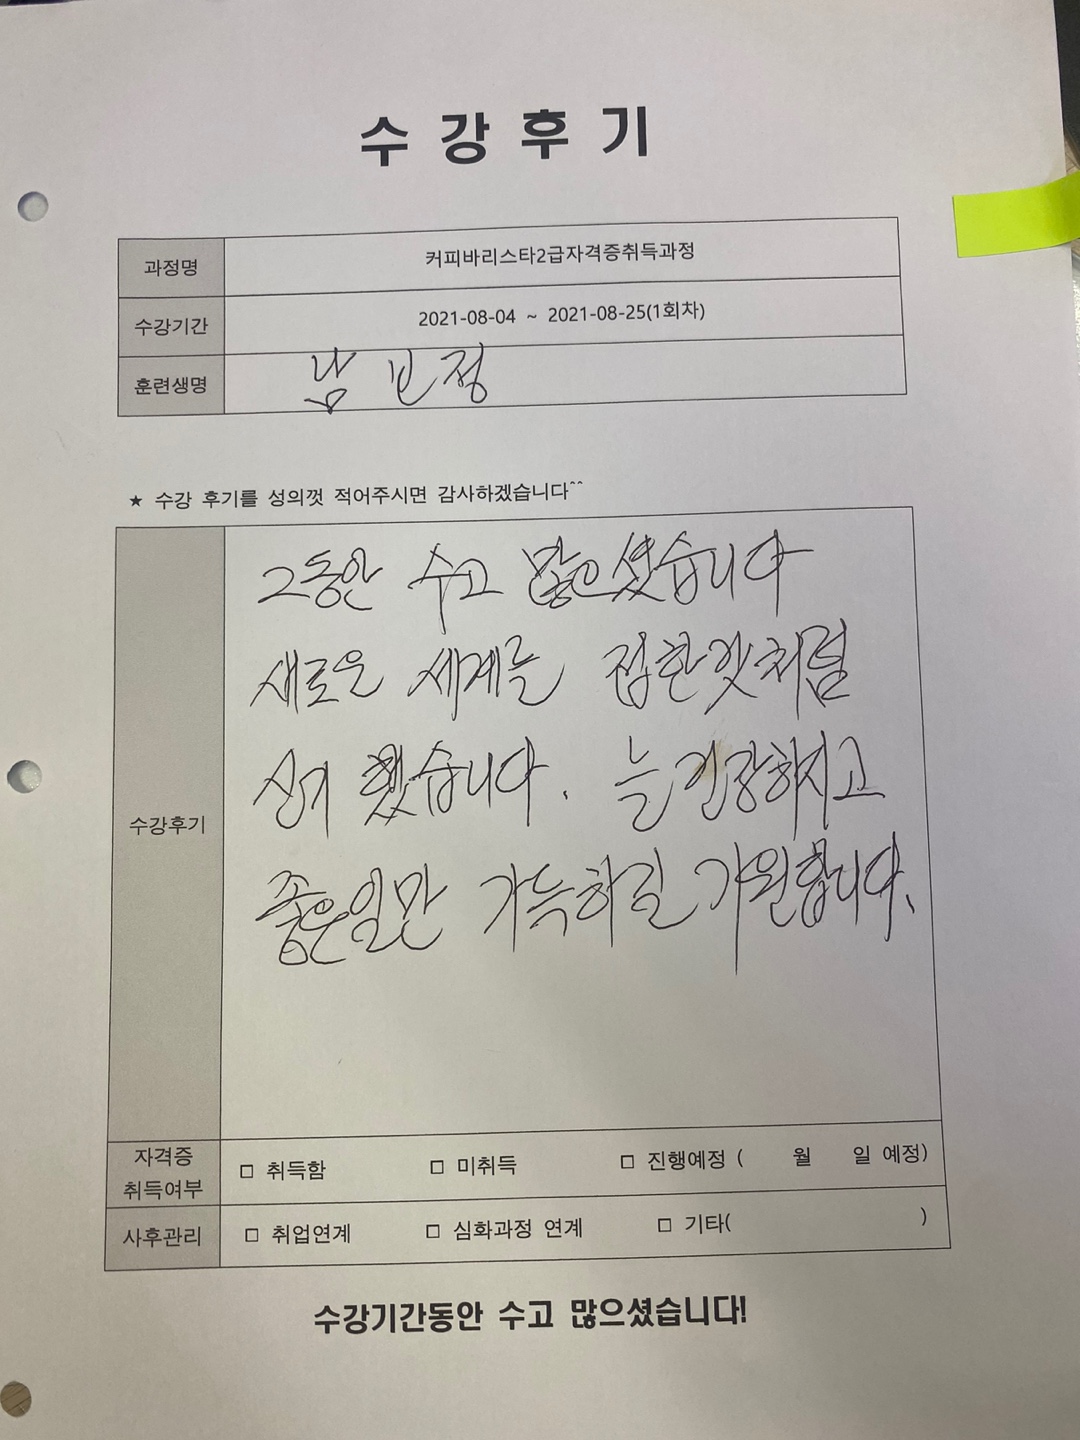 수 강 후 기
과정명 커피바리스타2급자격증취득과정
수강기간 2021-08-04 ~ 2021-08-25(1회차)
훈련생명 남 정
★ 수강 후기를 성의껏 적어주시면 감사하겠습니다^^
그동안 수고 많으셨습니다
새로운 세계를 접한것처럼
신기 했습니다. 늘건강하시고
수강후기
좋은일만 가득하길 기원합니다.
자격증 취득여부 □ 취득함 □ 미취득 □ 진행예정 ( 월 일 예정)
사후관리 □ 취업연계 □ 심화과정 연계 □ 기타( )
수강기간동안 수고 많으셨습니다!